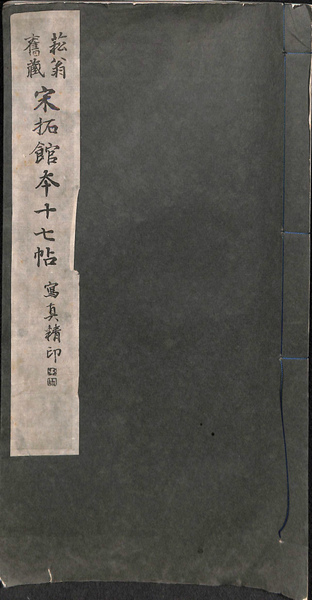 菘翁
舊藏
宋拓館本十七帖
寫真精印